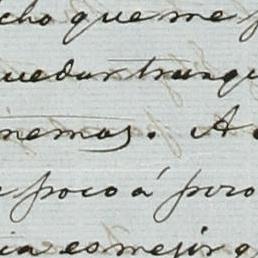 cho que me
quedar tranqu
nemos. A
poco á poco
ia es mejor q